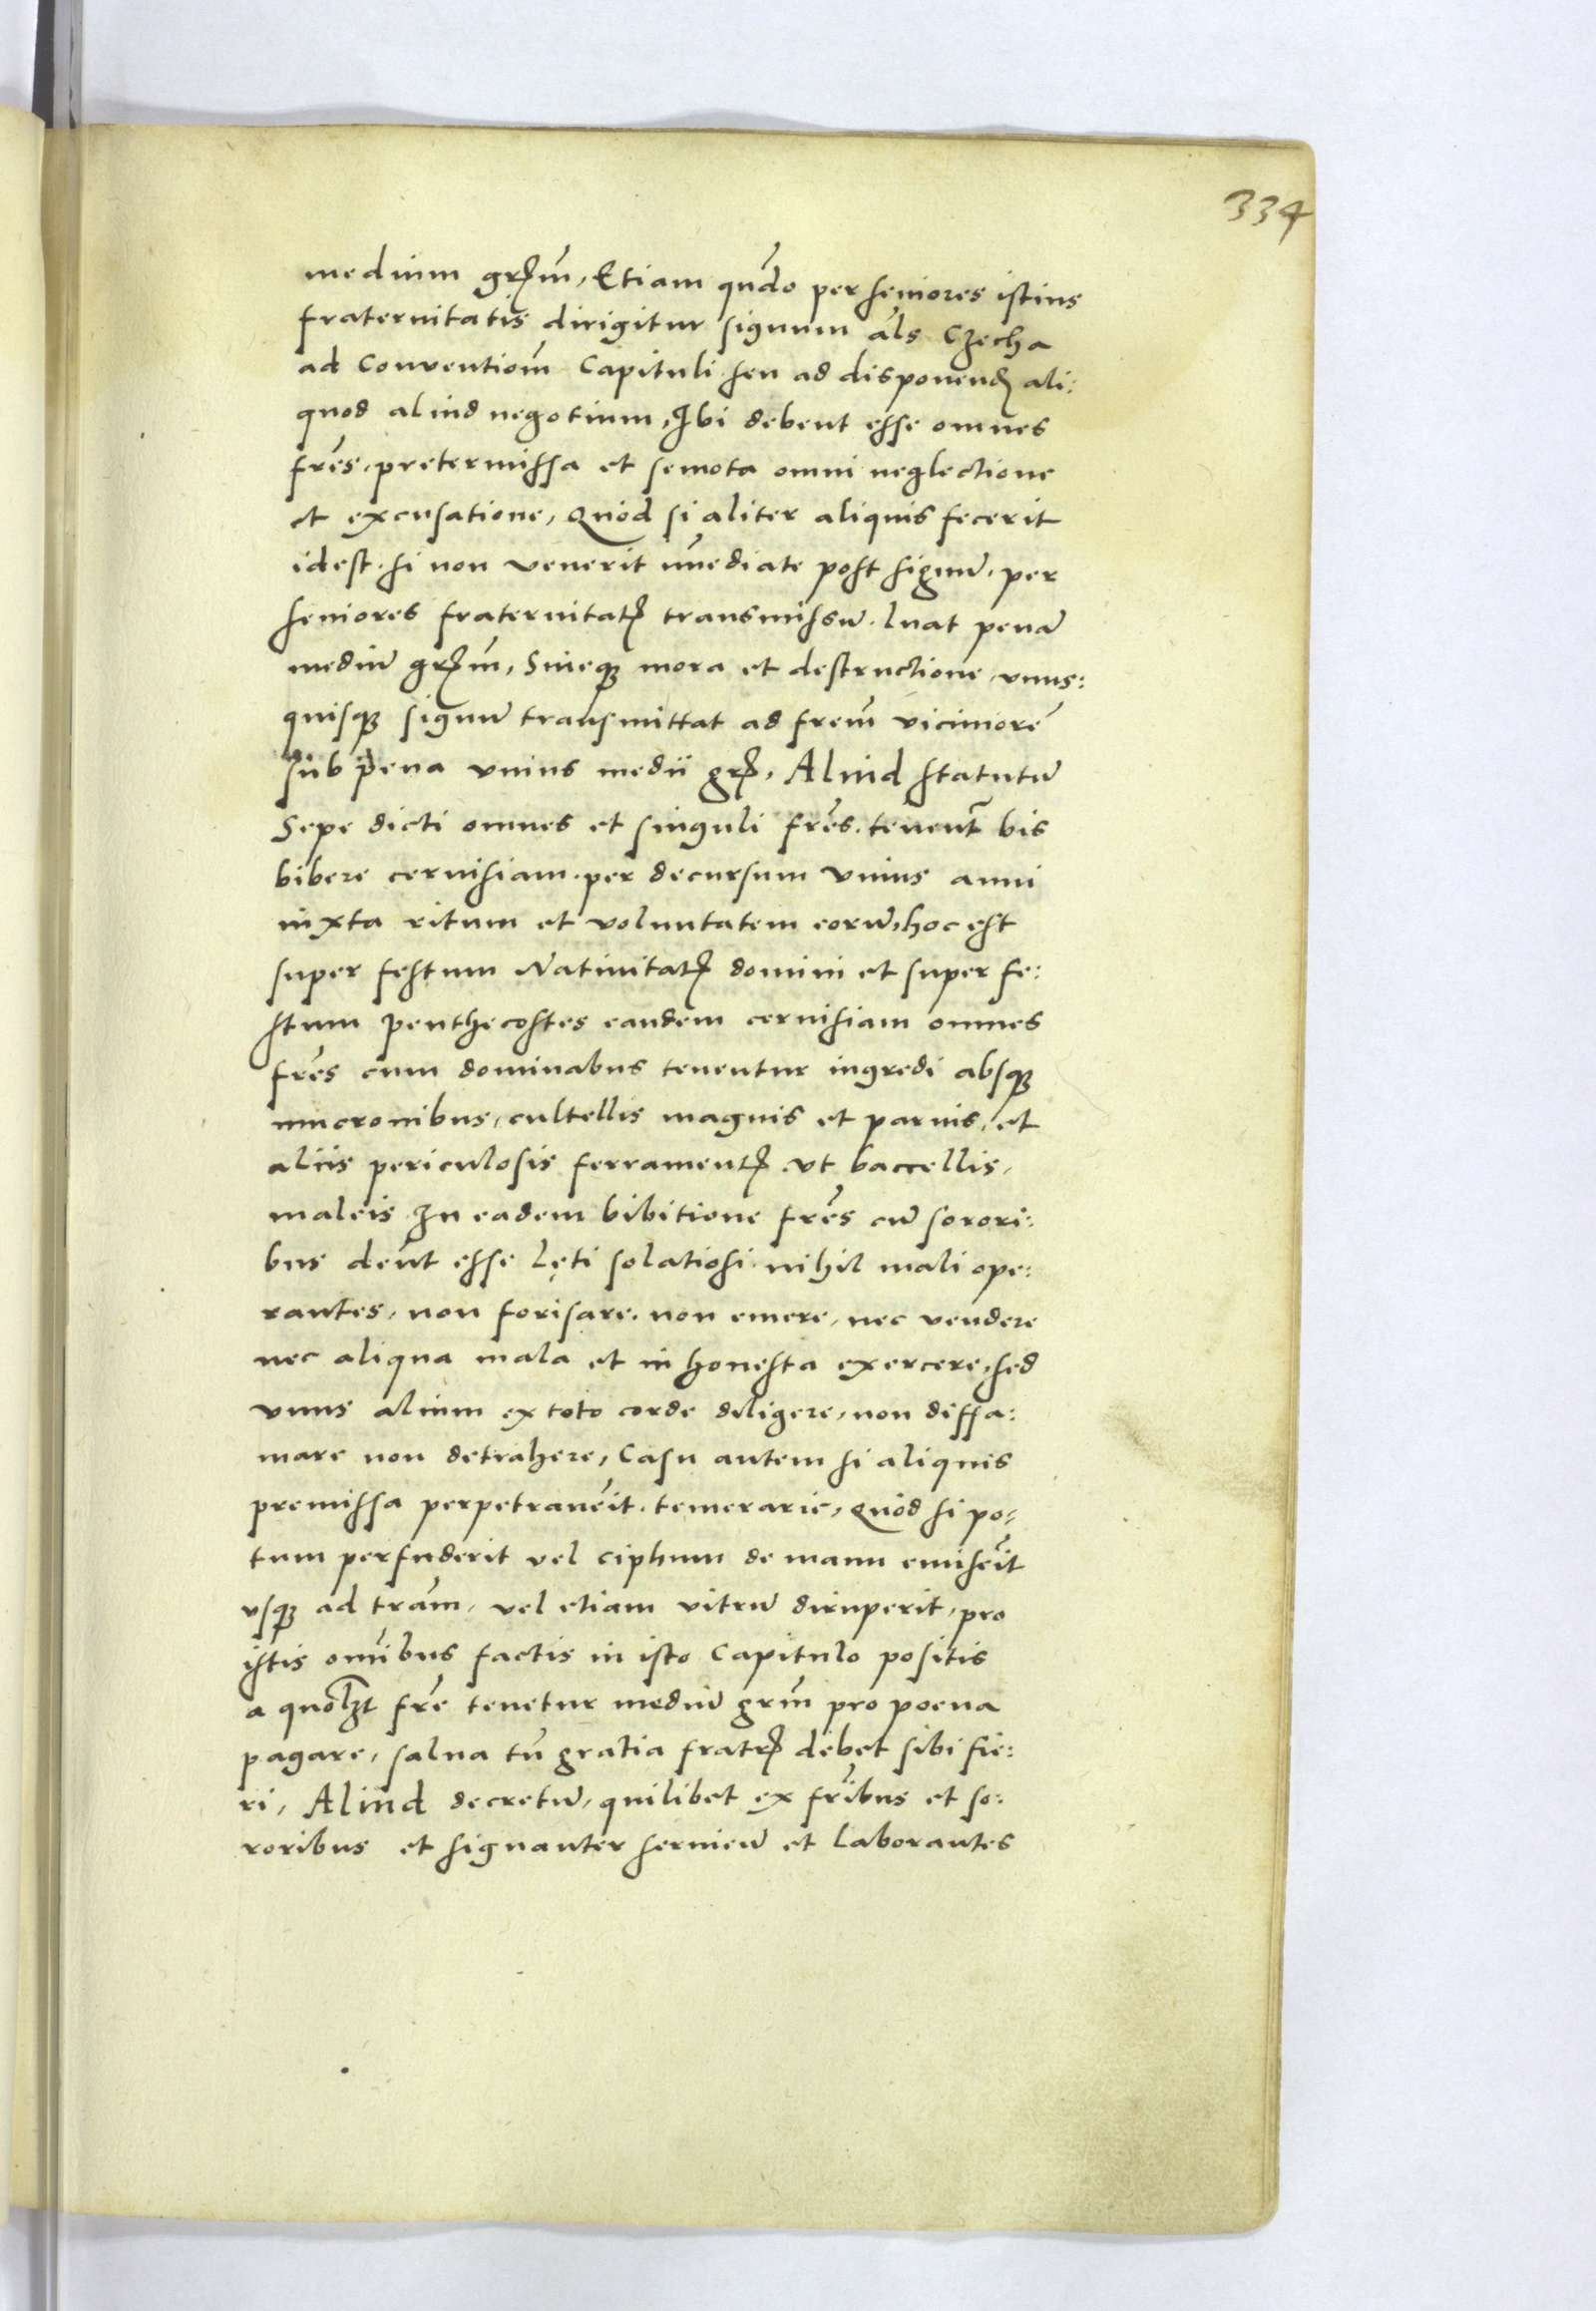 334
medium grꝭm̄, Etiam qn̄do per seniores istius
fraternitatis dirigitur signum al̄s Czecha
ad Conventiom̄ Capituli seu ad disponendꝭ ali:
quod aliud negotium, Ibi debent esse omnes
fr̄es, pretermissa et semota omni neglectione
et excusatione, Quod si aliter aliquis fecerit
idest, si non venerit im̄ediate post signū, per
seniores fraternitatꝭ transmissū, luat penā
mediū grꝭm̄, Sineqꝫ mora et destructione, vnus:
quisqꝫ signū transmittat ad frem̄ viciniorē
sub pena vnius medii grꝭ, Aliud statutū
Sepe dicti omnes et singuli fr̄es, tenent̄ bis
bibere ceruisiam, per decursum vnius anni
iuxta ritum et voluntatem eorū, hoc est
super festum Natiuitatꝭ domini et super fe:
stum penthecostes eandem ceruisiam omnes
fr̄es cum dominabus tenentur ingredi absqꝫ
mucronibus, cultellis magnis et paruis, et
aliis periculosis ferramentꝭ, vt baccellis,
maleis In eadem bibitione fr̄es cū sorori:
bus den̄t esse lęti solatiosi, nihil mali ope:
rantes, non forisare, non emere, nec vendere
nec aliqua mala et in honesta exercere, sed
vnus alium ex toto corde diligere, non diffa:
mare non detrahere, Casu autem si aliquis
premissa perpetrauēit, temerarie, Quod si po:
tum perfuderit vel ciphum de manu emisēit
vsqꝫ ad tr̄am, vel etiam vitrū diruperit, pro
istis om̄ibus factis in isto Capitulo positis
a quolꝫt fr̄e tenetur mediū grm̄ pro poena
pagare, salua tn̄ gratia fratrꝭ debet sibi fie:
ri, Aliud decretū, quilibet ex fr̄ibus et so:
roribus et signanter seruieū et laborantes